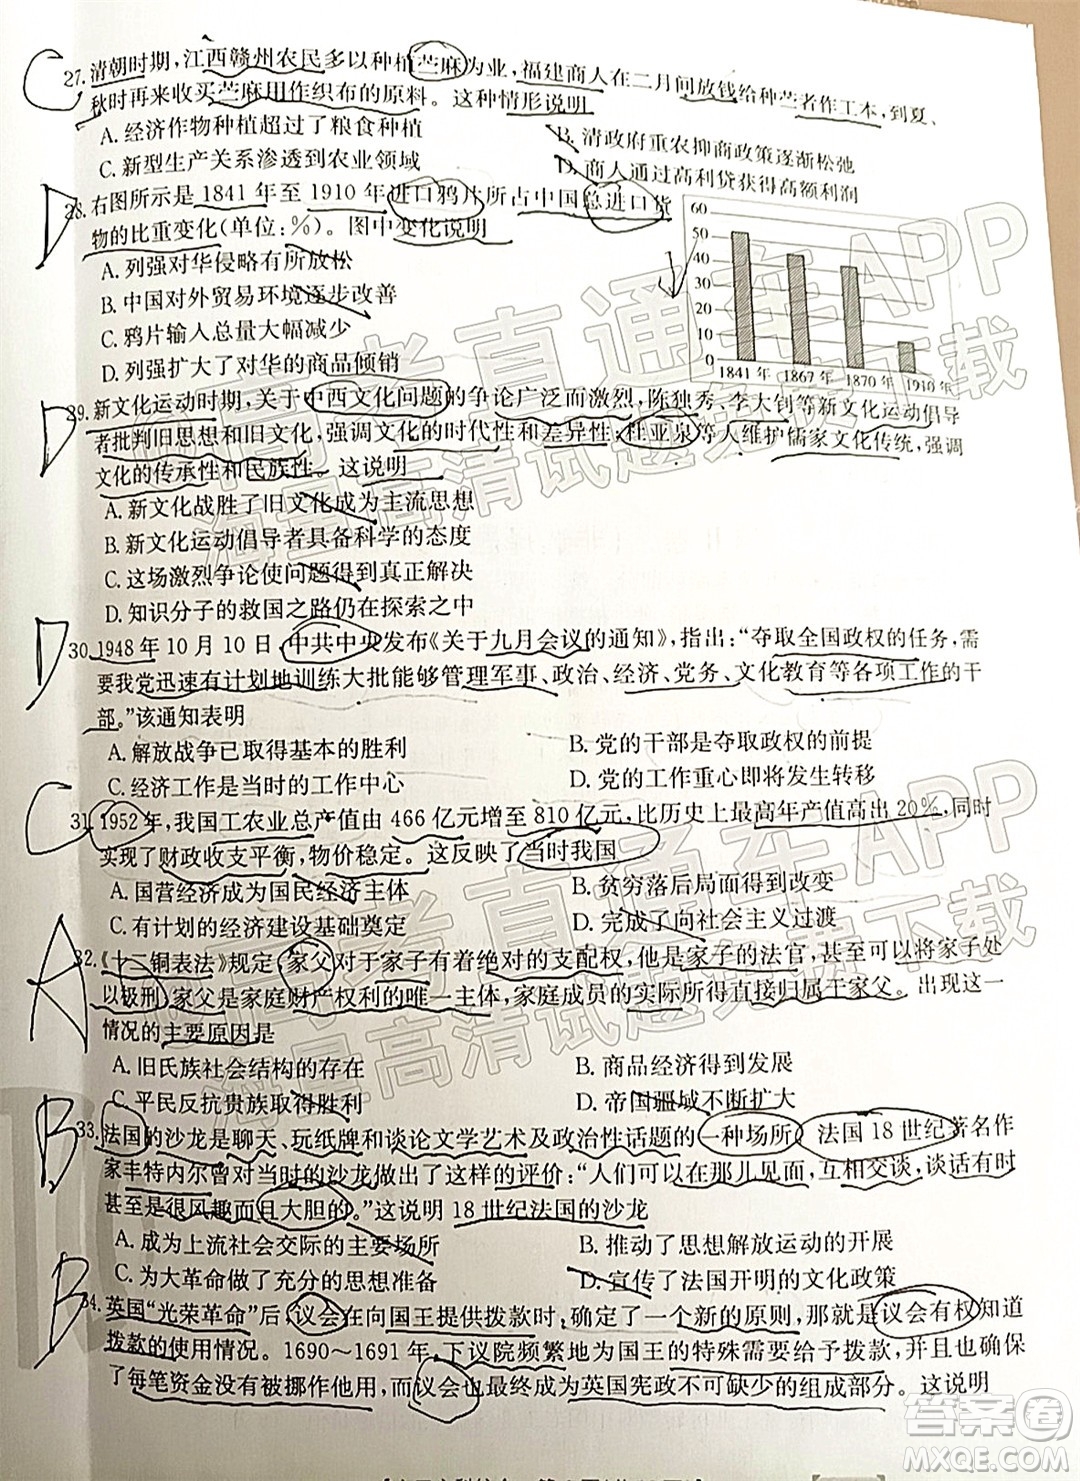 C 27.清朝时期,江西赣州农民多以种植苎麻为业,福建商人在二月间放钱给种苎者作工本,到夏、
秋时再来收买苎麻用作织布的原料。这种情形说明
A.经济作物种植超过了粮食种植
B.清政府重农抑商政策逐渐松弛
C.新型生产关系渗透到农业领域
D.商人通过高利贷获得高额利润
D 28.右图所示是1841年至1910年进口鸦片所占中国总进口货
物的比重变化(单位:%)。图中变化说明
A.列强对华侵略有所放松
B.中国对外贸易环境逐步改善
C.鸦片输入总量大幅减少
D.列强扩大了对华的商品倾销
60
50
40
30
20
10
0
1841年 1867年 1870年 1910年
D 29.新文化运动时期,关于中西文化问题的争论广泛而激烈,陈独秀、李大钊等新文化运动倡导
者批判旧思想和旧文化,强调文化的时代性和差异性;杜亚泉等人维护儒家文化传统,强调
文化的传承性和民族性。这说明
A.新文化战胜了旧文化成为主流思想
B.新文化运动倡导者具备科学的态度
C.这场激烈争论使问题得到真正解决
D.知识分子的救国之路仍在探索之中
D 30.1948年10月10日,中共中央发布《关于九月会议的通知》,指出:“夺取全国政权的任务,需
要我党迅速有计划地训练大批能够管理军事、政治、经济、党务、文化教育等各项工作的干
部。”该通知表明
A.解放战争已取得基本的胜利
B.党的干部是夺取政权的前提
C.经济工作是当时的工作中心
D.党的工作重心即将发生转移
C 31.1952年,我国工农业总产值由466亿元增至810亿元,比历史上最高年产值高出20%,同时
实现了财政收支平衡,物价稳定。这反映了当时我国
A.国营经济成为国民经济主体
B.贫穷落后局面得到改变
C.有计划的经济建设基础奠定
D.完成了向社会主义过渡
A 32.《十二铜表法》规定,家父对于家子有着绝对的支配权,他是家子的法官,甚至可以将家子处
以极刑,家父是家庭财产权利的唯一主体,家庭成员的实际所得直接归属于家父。出现这一
情况的主要原因是
A.旧氏族社会结构的存在
B.商品经济得到发展
C.平民反抗贵族取得胜利
D.帝国疆域不断扩大
B 33.法国的沙龙是聊天、玩纸牌和谈论文学艺术及政治性话题的一种场所。法国18世纪著名作
家丰特内尔曾对当时的沙龙做出了这样的评价:“人们可以在那儿见面,互相交谈,谈话有时
甚至是很风趣而且大胆的。”这说明18世纪法国的沙龙
A.成为上流社会交际的主要场所
B.推动了思想解放运动的开展
C.为大革命做了充分的思想准备
D.宣传了法国开明的文化政策
B 34.英国“光荣革命”后,议会在向国王提供拨款时,确定了一个新的原则,那就是议会有权知道
拨款的使用情况。1690～1691年,下议院频繁地为国王的特殊需要给予拨款,并且确保
了每笔资金没有被挪作他用,而议会也最终成为英国宪政不可缺少的组成部分。这说明
高考直通车APP
海量高清试题免费下载
高考直通车APP
海量高清试题免费下载
答案圈
MXQE.COM